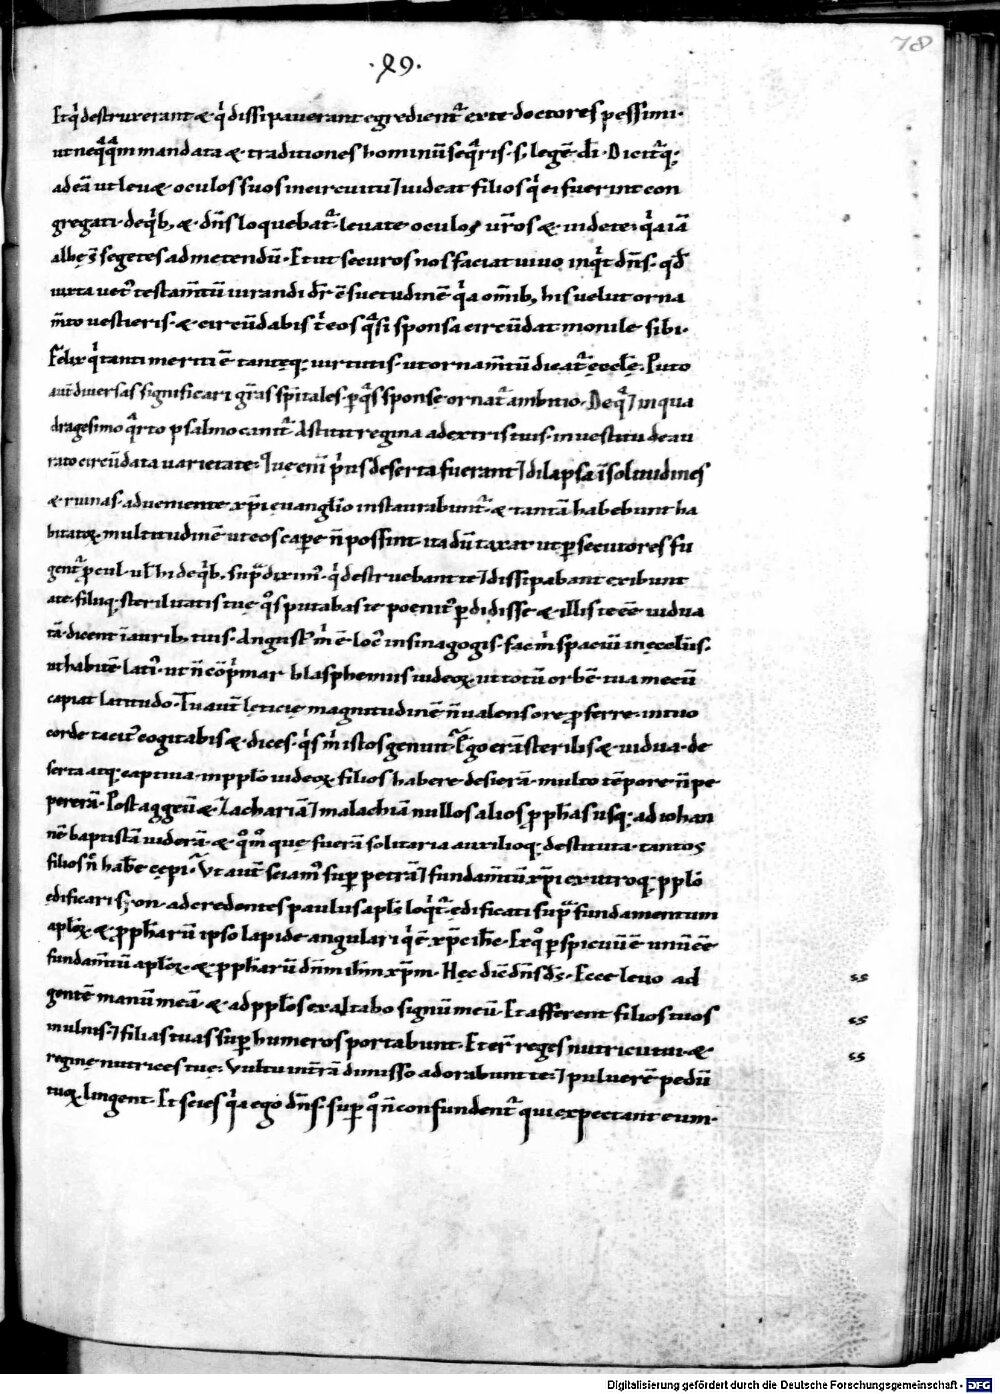 78
·X9·
Et q̇ destruxerant · & q̇ dissipauerant egredient̄ ex te · doctores pessimi ·
ut neq̇q̇m mandata & traditiones hominū seq̇ris · s; legē dī · Dicit̄ q;
ad eā ut leu& oculos suos in circuitu ⁊ uideat filios q̇ ei fuerint con
gregati · de q̇b; & dn̄s loquebat̄ · leuate oculos ur̄os & uidete · q̇a iā
albę s̄ segetes ad metendū · Et ut securos nos faciat uiuo inq̇t dn̄s · qđ
iuxta uet̓ testam̄tū iurandi dī ē suetudinē q̇a om̄ib; his uelut orna
m̄to uestieris · & circūdabis t̓ eos q̇si sponsa circūdat monile sibi ·
Felix q̇ tanti meriti ē tantęq; uirtutis · ut ornam̄tū dicat̄ ęccłę · Puto
aut̄ diuersas significari gr̄as spi̅tales · p̱ q̇s sponsę ornat̄ ambitio · De q̇ ⁊ in qua
dragesimo q̇rto psalmo canit̄ · Astitit regina a dextris tuis · in uestitu deau
rato circūdata uarietate · Que eni̅ p̓us deserta fuerant ⁊ dilapsa ī solitudines
& ruinas · adueniente xp̄i euangłio instaurabunt̄ · & tantā habebunt ha
bitatoꝝ · multitudinē ut eos cap̱e n̄ possint · ita dūtaxat ut p̱secutores fu
gent̄ p̱cul · uł hi de q̇b; sup̄ dixim̓ · q̇ destruebant te ⁊ dissipabant exibunt
a te · filiiq; sterilitatis tuę q̊s putabas te poenit̓ p̱didisse & illis te eē uidua
tā · dicent ī aurib; tuis · Angust̓ m̓ ē loc̓ in sinagogis · fac m̓ spaciū in ęcclīis ·
ut habitē lati̓ · ut n̄ cōp̓mar blasphemiis iudeoꝝ, ut totū orbē tua mecū
capiat latitudo · Tu aut̄ lęticię magnitudinē n̄ ualens ore p̱ferre · in tuo
corde tacit̓ cogitabis & dices · q̇s m̓ istos genuit̓ · Ego erā sterilis & uidua · de
serta atq; captiua · in pp̄lo iudeoꝝ filios habere desierā · multo tēpore n̄ pe
pererā · Post aggeū & Zachariā ⁊ malachiā nullos alios p̱ph̄as usq; ad iohan
nē baptistā uiderā · & q̊m̊ que fuerā solitaria auxilioq; destituta · tantos
filios n̄c hab̄e cępi̓ · Ut aut̄ sciam̓ sup̱ petrā ⁊ fundam̄tū xp̄i ex utroq; pp̄lo
edificari syon · ad credentes paulus apłs loq̇t̄ · edificati sup̄ fundamentum
apłoꝝ · & p̱ph̄arū ipso lapide angulari q̇ ē xp̄c ih̄c · Ex q̊ p̱spicuū ē unū eē
fundam̄tū apłoꝝ · & p̱ph̄arū dn̄m ih̄m xp̄m · Hęc dic̄ dn̄s ds̄ · Ecce leuo ad
gentē manū meā · & ad pp̄los exaltabo signū meū · Et afferent filios tuos
in ulnis · ⁊ filias tuas sup̱ humeros portabunt · Et er̄t reges nutricii tui · &
reginę nutrices tuę · Vultu in tr̄ā dimisso adorabunt te · ⁊ puluerē pedū
tuoꝝ lingent · Et scies q̇a ego dn̄s · sup̱ q̊ n̄ confundent̄ qui expectant eum ·
ss
ss
ss
Digitalisierung gefördert durch die Deutsche Forschungsgemeinschaft - DFG